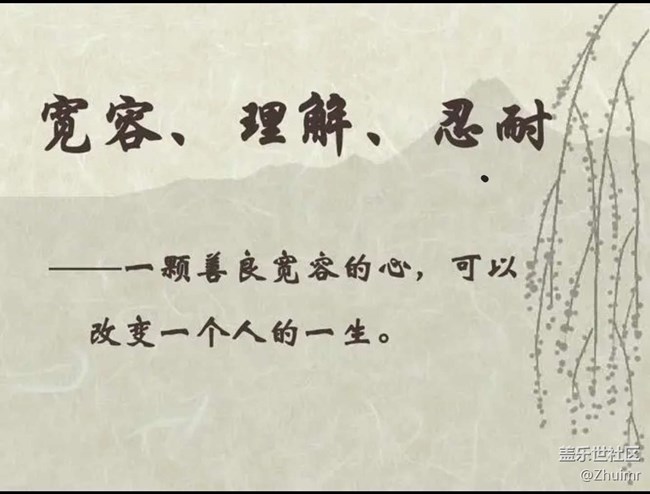 宽容、理解、忍耐
——一颗善良宽容的心，可以
改变一个人的一生。
盖乐世社区
@Zhuimr